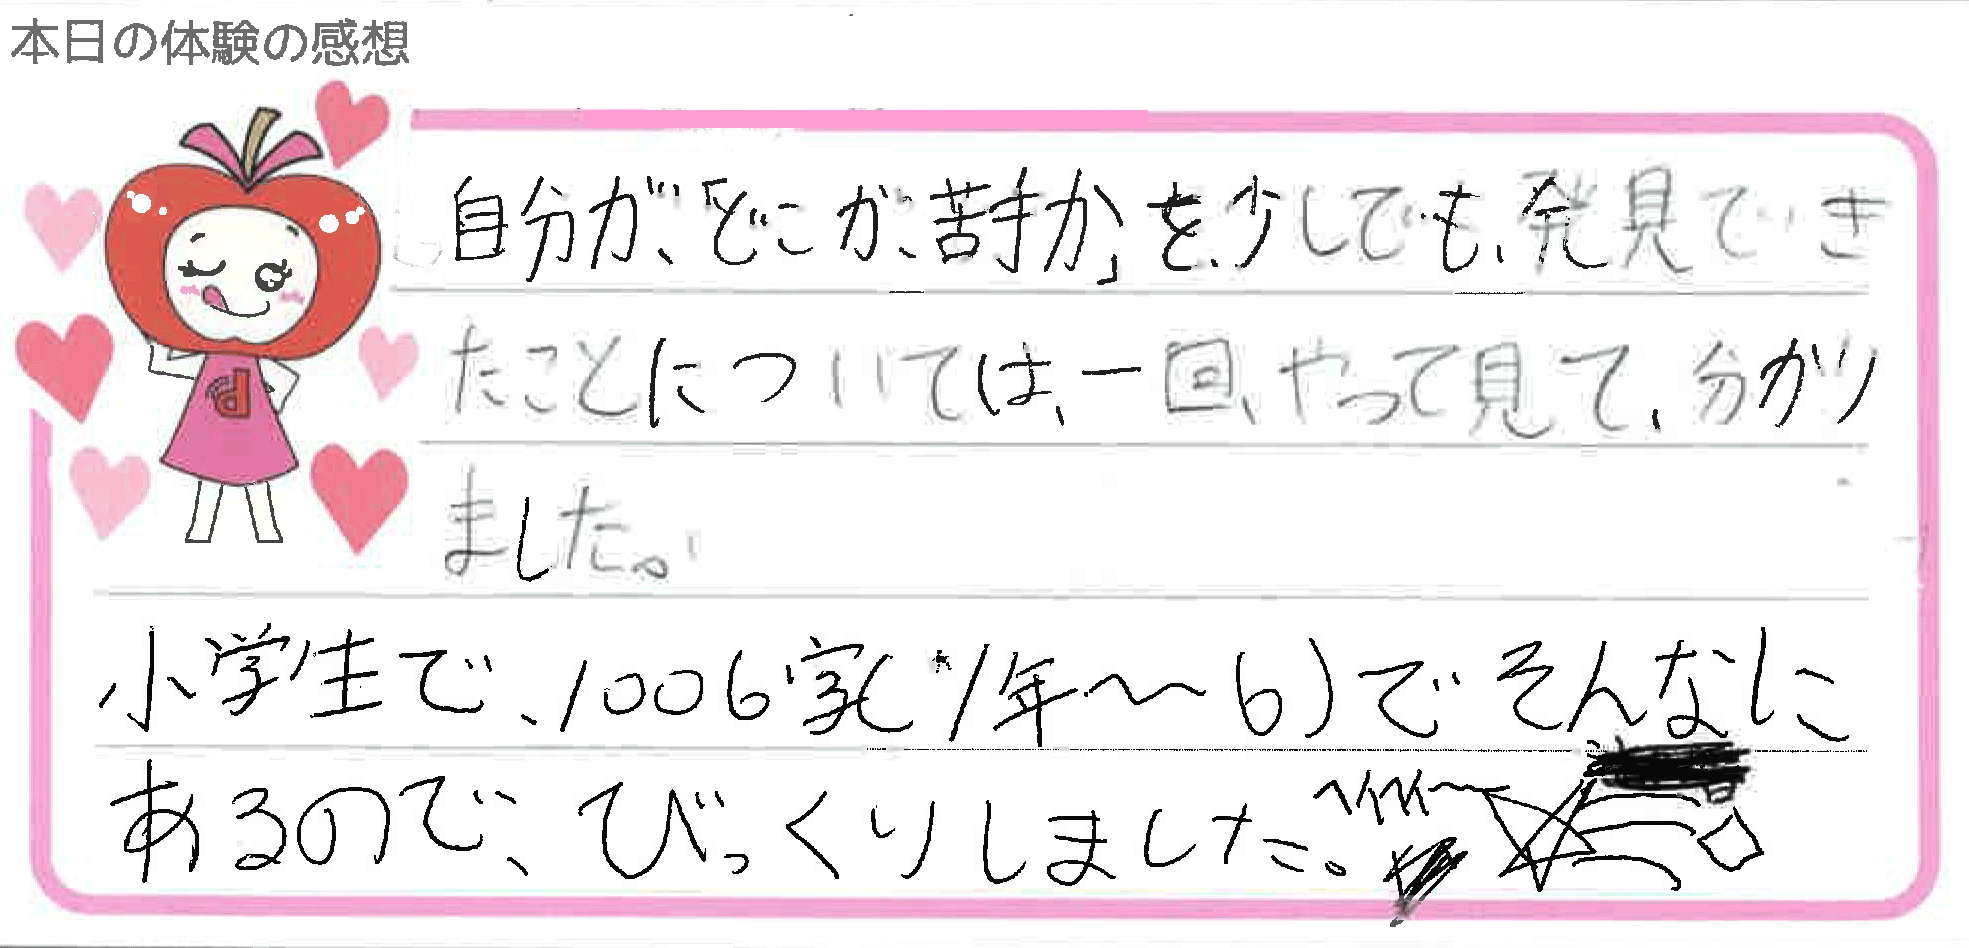 本日の体験の感想
自分が、「どこが、苦手か」を、少しでも、発見でき
たことについては、一回、やって見て、分かり
ました。
小学生で、1006字(*1年〜6)でそんなに
あるので、びっくりしました。